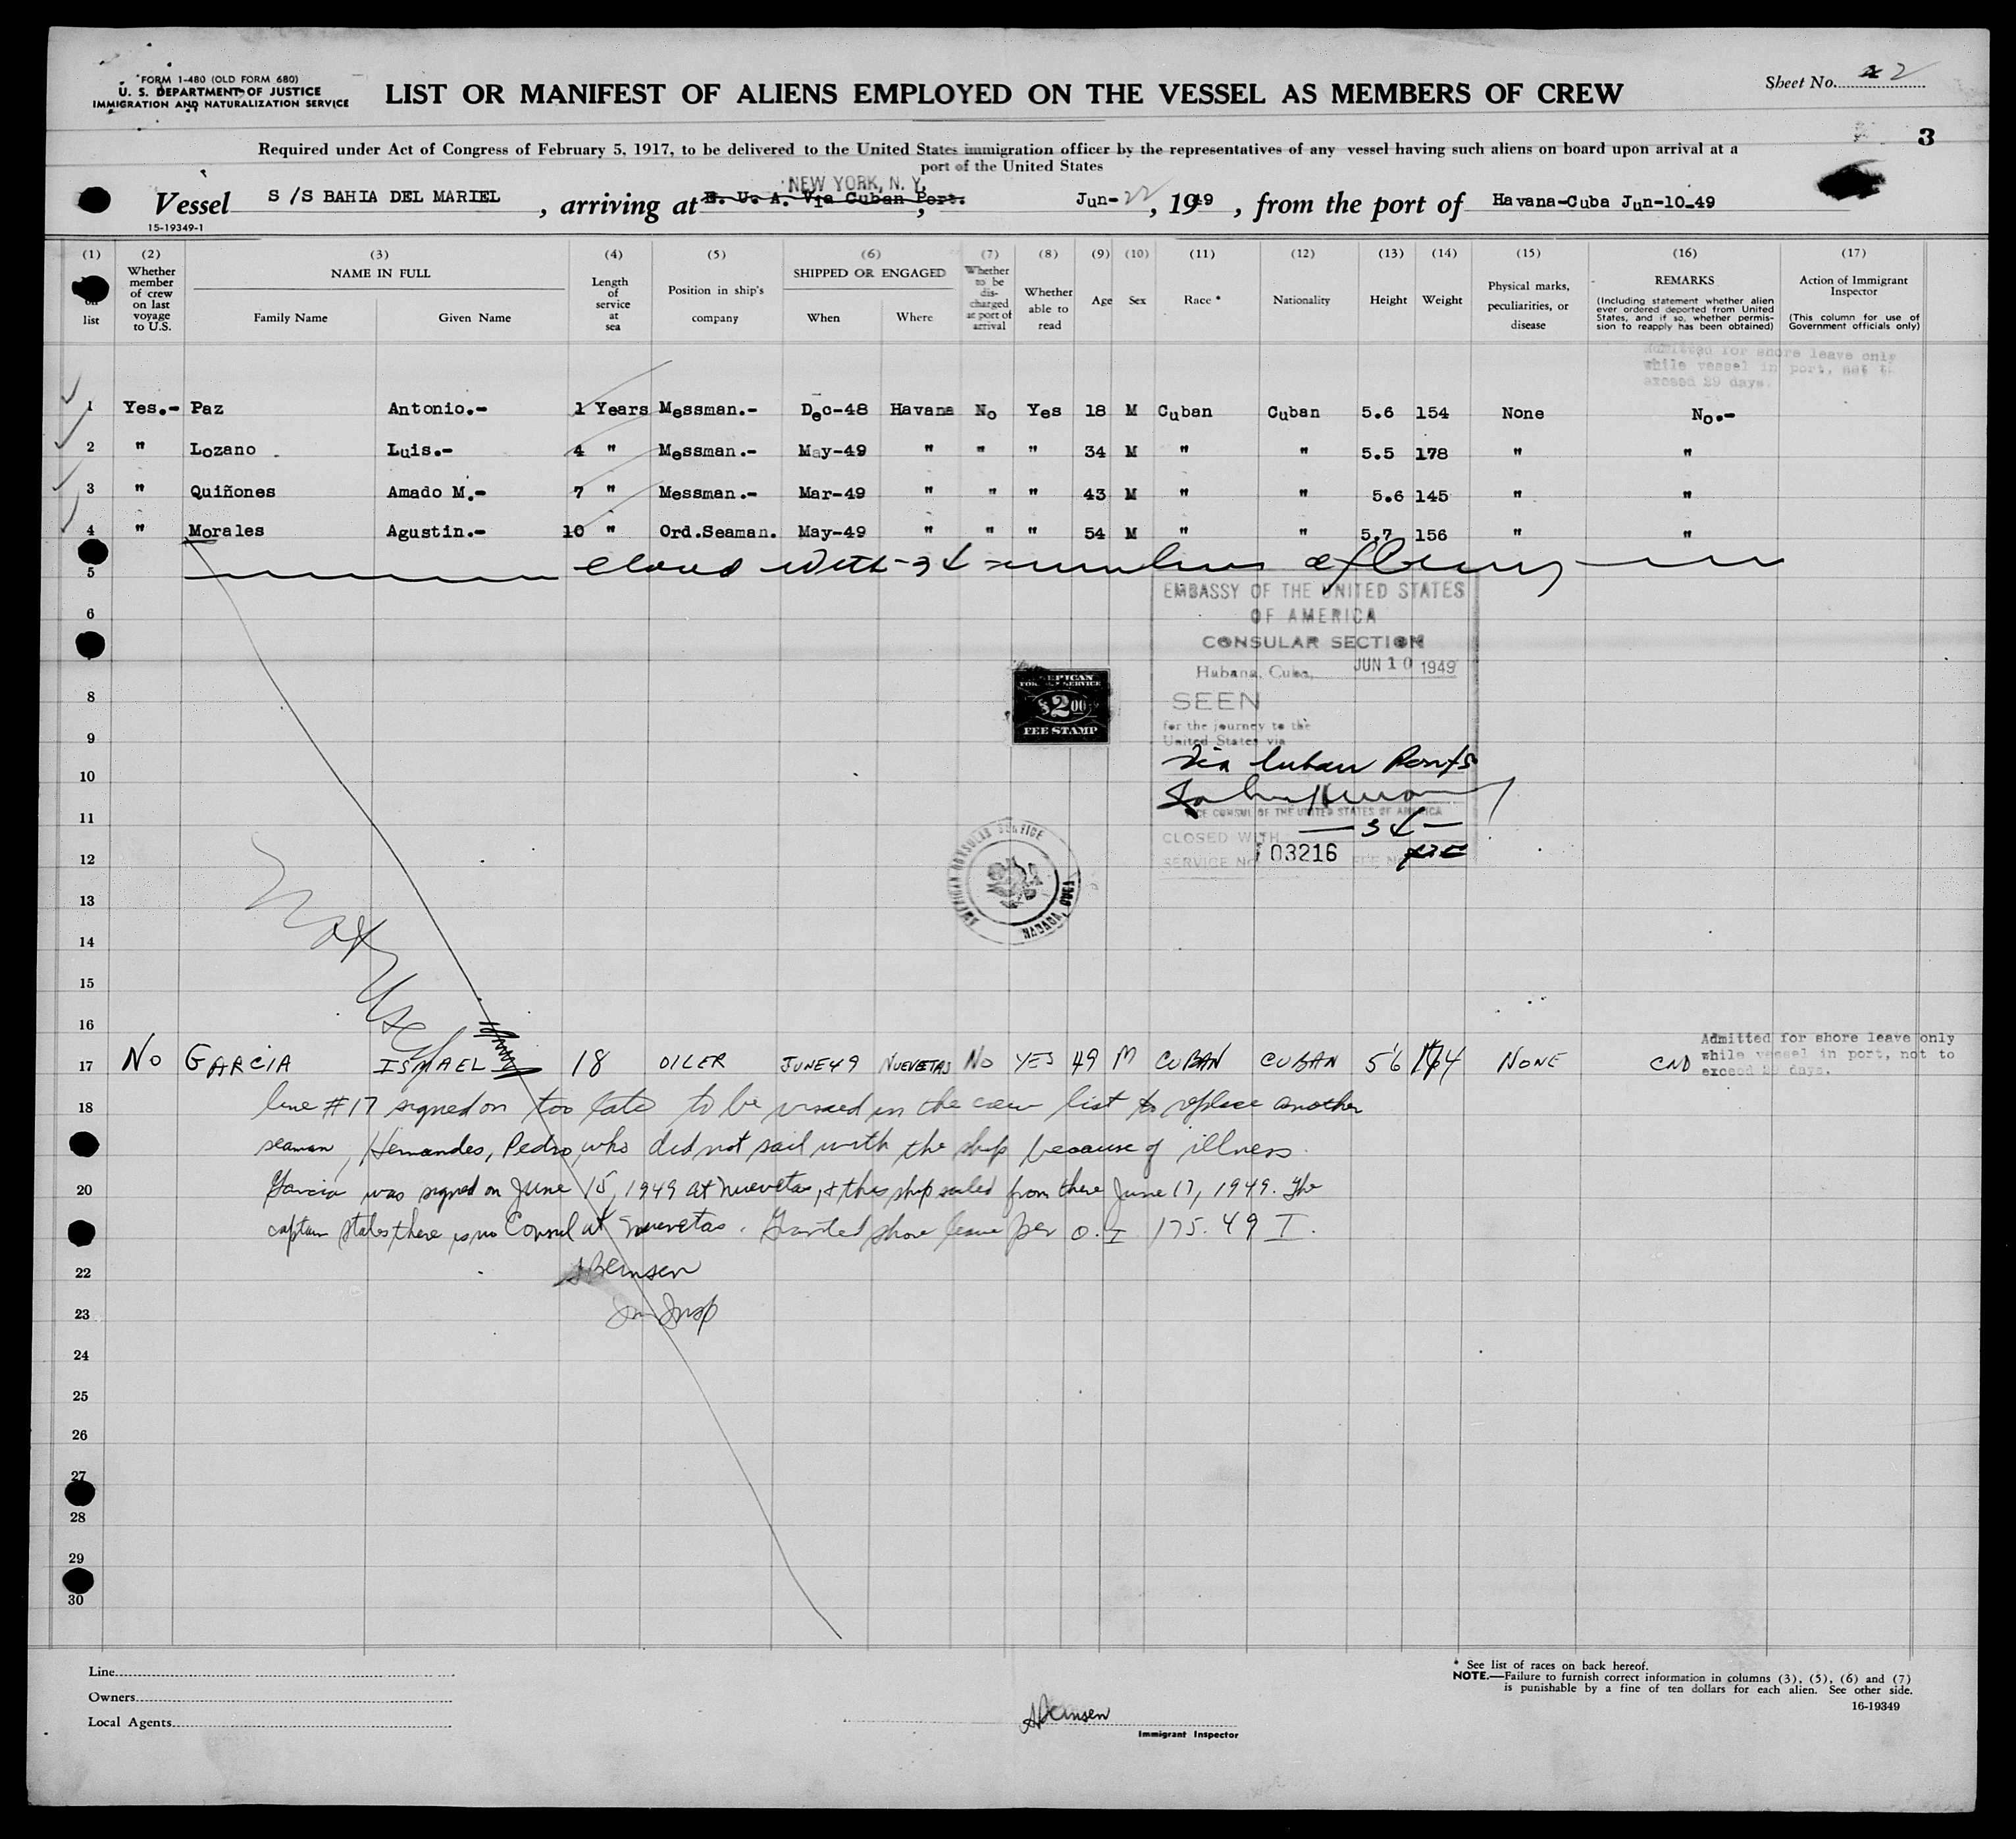 FORM 1-480 (OLD FORM 680)
U. S. DEPARTMENT OF JUSTICE
IMMIGRATION AND NATURALIZATION SERVICE
LIST OR MANIFEST OF ALIENS EMPLOYED ON THE VESSEL AS MEMBERS OF CREW
Sheet No. 2
3
Required under Act of Congress of February 5, 1917, to be delivered to the United States immigration officer by the representatives of any vessel having such aliens on board upon arrival at a
port of the United States
NEW YORK, N. Y.
Vessel S/S BAHIA DEL MARIEL, arriving at E. U. A. Via Cuban Port., Jun-22, 1949, from the port of Havana-Cuba Jun-10-49
15-19349-1
(1) (2) (3) (4) (5) (6) (7) (8) (9) (10) (11) (12) (13) (14) (15) (16) (17)
on list
Whether member of crew on last voyage to U.S.
NAME IN FULL
Family Name Given Name
Length of service at sea
Position in ship's company
SHIPPED OR ENGAGED
When Where
Whether to be discharged at port of arrival
Whether able to read
Age Sex Race * Nationality Height Weight
Physical marks, peculiarities, or disease
REMARKS
(Including statement whether alien ever ordered deported from United States, and if so, whether permission to reapply has been obtained)
Action of Immigrant Inspector
(This column for use of Government officials only)
Admitted for shore leave only
while vessel in port, not to
exceed 29 days.
1 Yes.- Paz Antonio.- 1 Years Messman.- Dec-48 Havana No Yes 18 M Cuban Cuban 5.6 154 None No.-
2 " Lozano Luis.- 4 " Messman.- May-49 " " " 34 M " " 5.5 178 " "
3 " Quiñones Amado M.- 7 " Messman.- Mar-49 " " " 43 M " " 5.6 145 " "
4 " Morales Agustin.- 10 " Ord.Seaman. May-49 " " " 54 M " " 5.7 156 " "
5 closed with -34- members of crew
6
EMBASSY OF THE UNITED STATES
OF AMERICA
CONSULAR SECTION
Habana, Cuba, JUN 10 1949
SEEN
for the journey to the
United States via
Via Cuban Ports
VICE CONSUL OF THE UNITED STATES OF AMERICA
CLOSED WITH -34-
SERVICE No. 03216 FEE No.
AMERICAN FOREIGN SERVICE
$2.00
FEE STAMP
AMERICAN CONSULAR SERVICE
8
9
10
11
12
13
14
15
16
Not Used
17 No GARCIA ISMAEL 18 OILER JUNE 49 NUEVETAS No YES 49 M CUBAN CUBAN 5'6 164 NONE CND
Admitted for shore leave only
while vessel in port, not to
exceed 29 days.
18 line #17 signed on too late to be visaed in the crew list to replace another
seaman, Hernandes, Pedro, who did not sail with the ship because of illness.
20 Garcia was signed on June 15, 1949 at Nuevetas, & this ship sailed from there June 17, 1949. The
captain states there is no Consul at Nuevetas. Granted shore leave per O.I 175.49 I.
22
23 Im Insp
24
25
26
27
28
29
30
Line
Owners
Local Agents
Immigrant Inspector
* See list of races on back hereof.
NOTE.—Failure to furnish correct information in columns (3), (5), (6) and (7)
is punishable by a fine of ten dollars for each alien. See other side.
16-19349